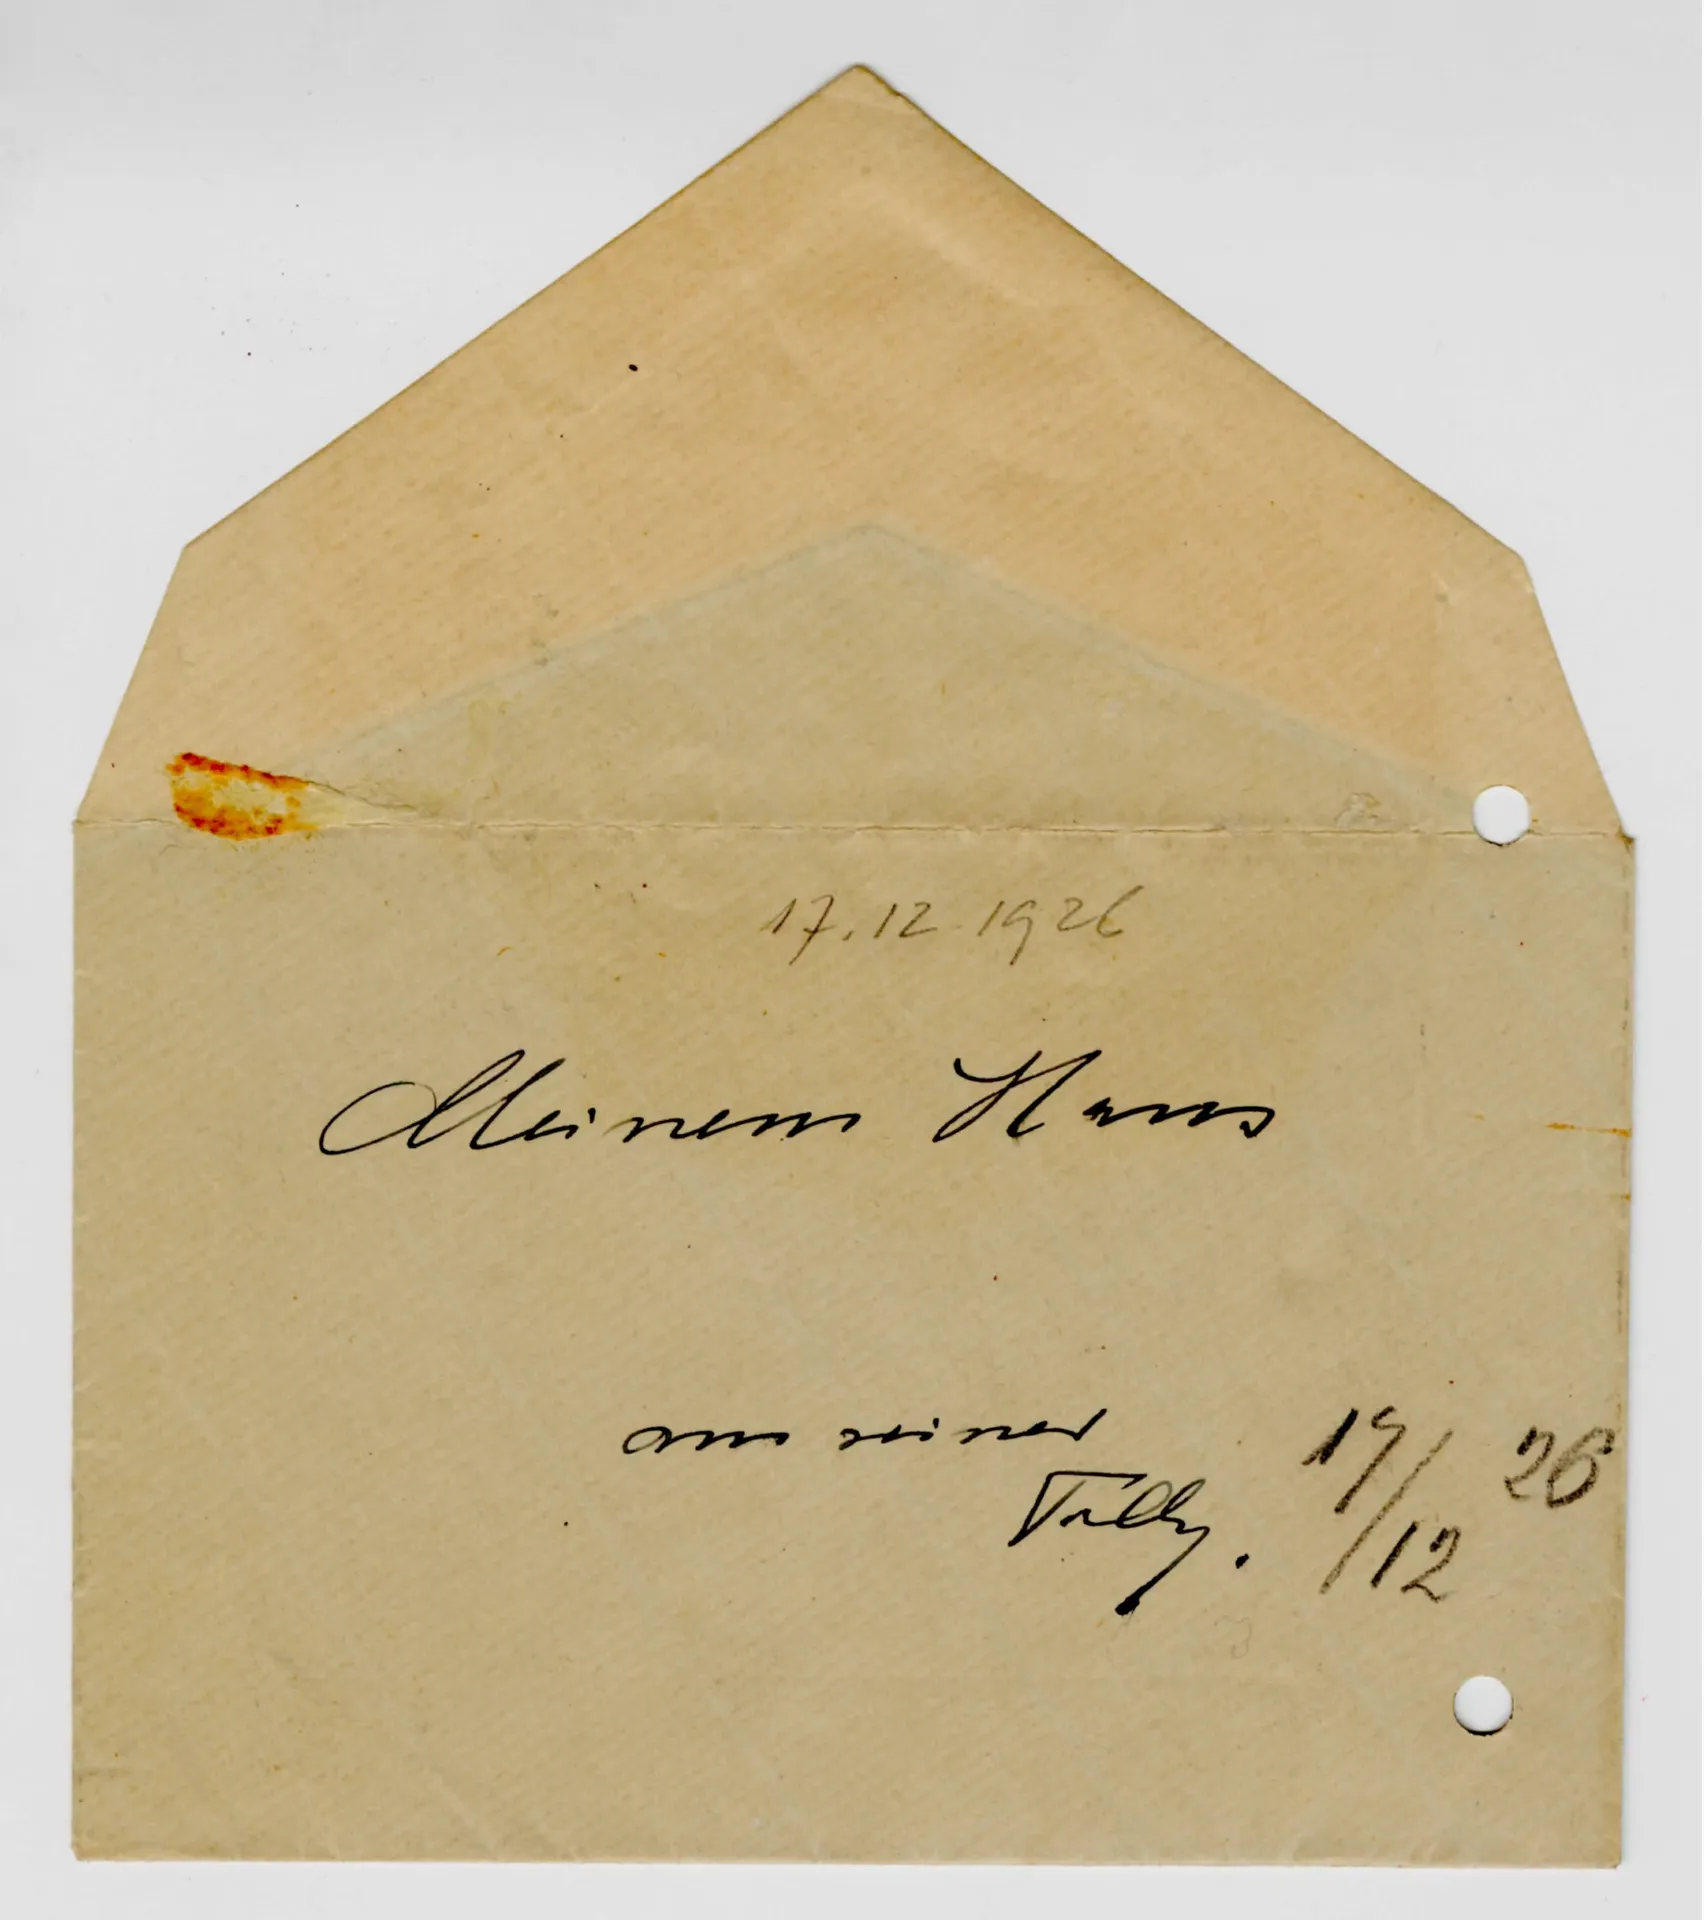 17.12.1926
Meinem Hans
von seiner
Tilly.
17/12 26